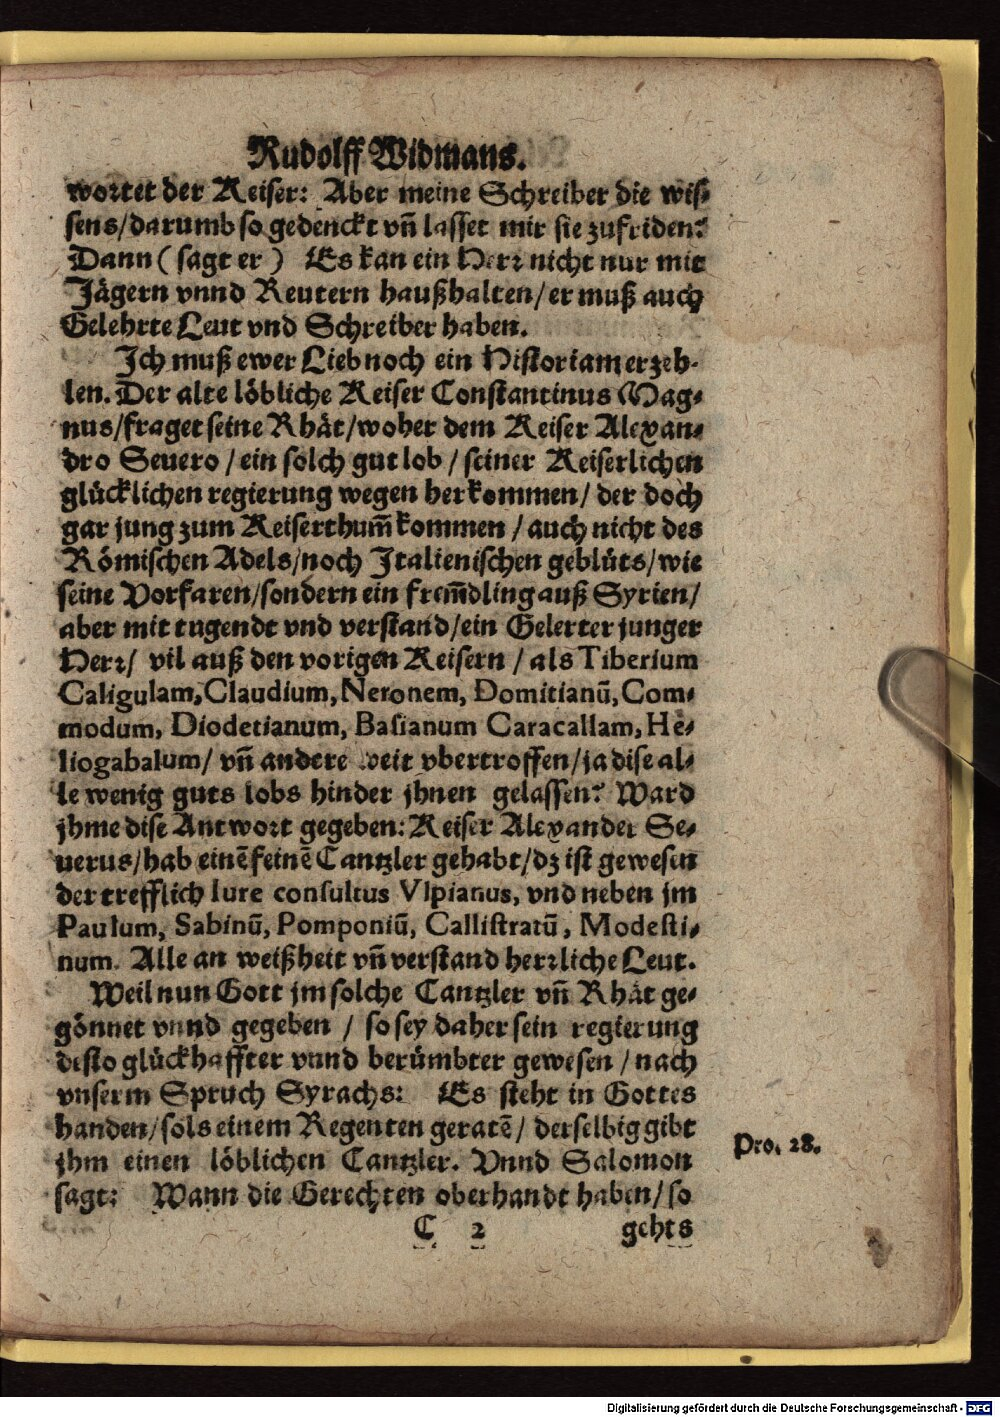 Rudolff Widmans.
wortet der Keiser: Aber meine Schreiber die wis-
sens/darumb so gedenckt vñ lasset mir sie zufriden:
Dann (sagt er) Es kan ein Herr nicht nur mit
Jägern vnnd Reutern haußhalten/er muß auch
Gelehrte Leut vnd Schreiber haben.
Ich muß ewer Lieb noch ein Historiam erzeh-
len. Der alte löbliche Keiser Constantinus Mag-
nus/fraget seine Rhät/woher dem Keiser Alexan-
dro Seuero/ein solch gut lob/seiner Keiserlichen
glücklichen regierung wegen herkommen/der doch
gar jung zum Keiserthum̃ kommen/auch nicht des
Römischen Adels/noch Italienischen geblüts/wie
seine Vorfaren/sondern ein frem̃dling auß Syrien/
aber mit tugendt vnd verstand/ein Gelerter junger
Herr/ vil auß den vorigen Keisern/als Tiberium
Caligulam, Claudium, Neronem, Domitianũ, Com-
modum, Diodetianum, Basianum Caracallam, He-
liogabalum/ vñ andere weit vbertroffen/ja dise al-
le wenig guts lobs hinder jhnen gelassen? Ward
jhme dise Antwort gegeben: Keiser Alexander Se-
uerus/hab einẽ feinẽ Cantzler gehabt/dz ist gewesen
der trefflich Iure consultus Vlpianus, vnd neben jm
Paulum, Sabinũ, Pomponiũ, Callistratũ, Modesti-
num. Alle an weißheit vñ verstand herrliche Leut.
Weil nun Gott jm solche Cantzler vñ Rhät ge-
gönnet vnnd gegeben/so sey daher sein regierung
desto glückhaffter vnnd berümbter gewesen/nach
vnserm Spruch Syrachs: Es steht in Gottes
handen/sols einem Regenten geratẽ/derselbig gibt
jhm einen löblichen Cantzler. Vnnd Salomon
Pro. 28.
sagt: Wann die Gerechten oberhandt haben/so
C 2 gehts
Digitalisierung gefördert durch die Deutsche Forschungsgemeinschaft - DFG